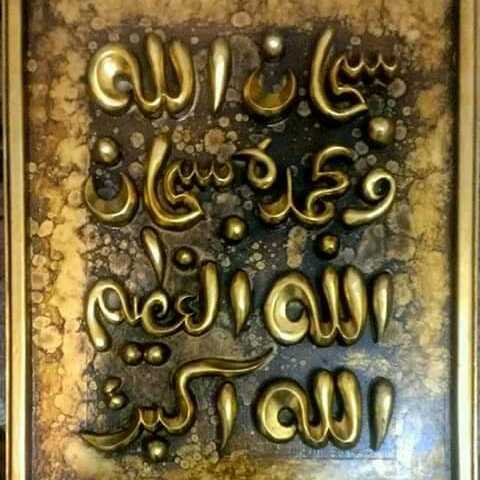 سبحان الله
وبحمده سبحان
الله العظيم
الله اكبر